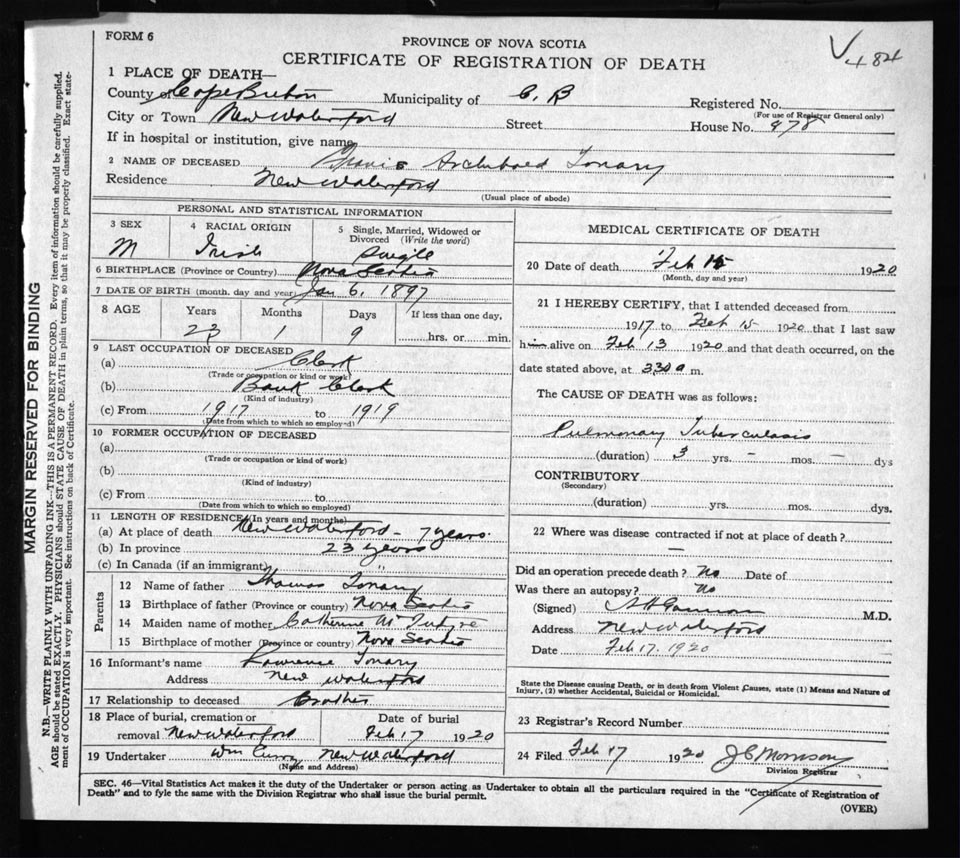 FORM 6
PROVINCE OF NOVA SCOTIA
CERTIFICATE OF REGISTRATION OF DEATH
484
1 PLACE OF DEATH—
County of Cape Breton Municipality of C. B Registered No.
(For use of Registrar General only)
City or Town New Waterford Street House No. 978
If in hospital or institution, give name
2 NAME OF DECEASED Archibald Tonary
Residence New Waterford
(Usual place of abode)
PERSONAL AND STATISTICAL INFORMATION
3 SEX 4 RACIAL ORIGIN 5 Single, Married, Widowed or
Divorced (Write the word)
M Irish Single
6 BIRTHPLACE (Province or Country) Nova Scotia
7 DATE OF BIRTH (month, day and year) Jan 6, 1897
8 AGE Years Months Days If less than one day,
23 1 9 hrs. or min.
9 LAST OCCUPATION OF DECEASED
(a) Clerk
(Trade or occupation or kind of work)
(b) Bank Clerk
(Kind of industry)
(c) From 1917 to 1919
(Date from which to which so employed)
10 FORMER OCCUPATION OF DECEASED
(a)
(Trade or occupation or kind of work)
(b)
(Kind of industry)
(c) From to
(Date from which to which so employed)
11 LENGTH OF RESIDENCE (In years and months)
(a) At place of death New Waterford - 7 years.
(b) In province 23 years
(c) In Canada (if an immigrant) "
Parents
12 Name of father Thomas Tonary
13 Birthplace of father (Province or country) Nova Scotia
14 Maiden name of mother Catherine McIntyre
15 Birthplace of mother (Province or country) Nova Scotia
16 Informant's name Lawrence Tonary
Address New Waterford
17 Relationship to deceased Brother
18 Place of burial, cremation or Date of burial
removal New Waterford Feb 17 1920
19 Undertaker Wm Curry New Waterford
(Name and Address)
MEDICAL CERTIFICATE OF DEATH
20 Date of death Feb 15 1920
(Month, day and year)
21 I HEREBY CERTIFY, that I attended deceased from
1917 to Feb 15 1920 that I last saw
him alive on Feb 13 1920 and that death occurred, on the
date stated above, at 3.30 a m.
The CAUSE OF DEATH was as follows:
Pulmonary Tuberculosis
(duration) 3 yrs. - mos. - dys
CONTRIBUTORY
(Secondary)
(duration) yrs. mos. dys.
22 Where was disease contracted if not at place of death?
—
Did an operation precede death? No Date of
Was there an autopsy? No
(Signed) M.D.
Address New Waterford
Date Feb 17. 1920
State the Disease causing Death, or in death from Violent Causes, state (1) Means and Nature of
Injury, (2) whether Accidental, Suicidal or Homicidal.
23 Registrar's Record Number
24 Filed Feb 17 1920 J C Morrison
Division Registrar
SEC. 46—Vital Statistics Act makes it the duty of the Undertaker or person acting as Undertaker to obtain all the particulars required in the "Certificate of Registration of
Death" and to fyle the same with the Division Registrar who shall issue the burial permit.
(OVER)
MARGIN RESERVED FOR BINDING
N.B.—WRITE PLAINLY WITH UNFADING INK—THIS IS A PERMANENT RECORD. Every item of information should be carefully supplied.
AGE should be stated EXACTLY. PHYSICIANS should STATE CAUSE OF DEATH in plain terms, so that it may be properly classified. Exact state-
ment of OCCUPATION is very important. See instructions on back of Certificate.